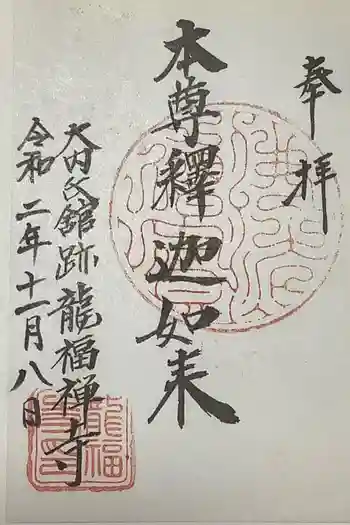 奉拝
本尊釋迦如来
大内氏館跡龍福禅寺
令和二年十一月八日
龍福